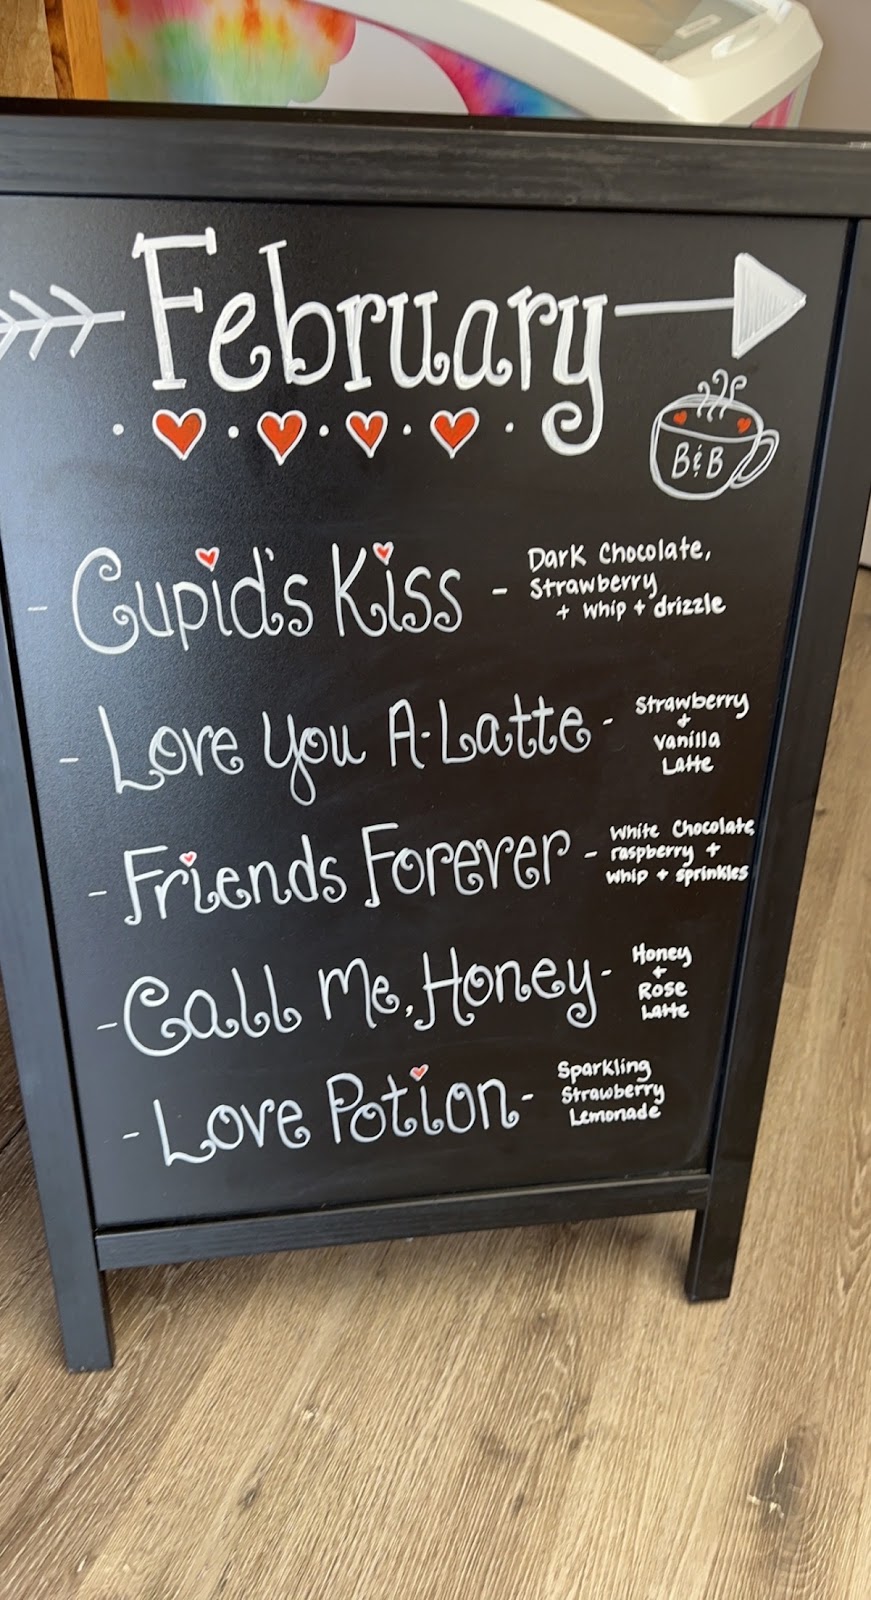 February
B&B
- Cupid's Kiss - Dark Chocolate,
Strawberry
+ whip + drizzle
- Love You A-Latte - Strawberry
+
Vanilla
Latte
- Friends Forever - White Chocolate,
raspberry +
whip + sprinkles
- Call Me, Honey - Honey
+
Rose
Latte
- Love Potion - Sparkling
Strawberry
Lemonade